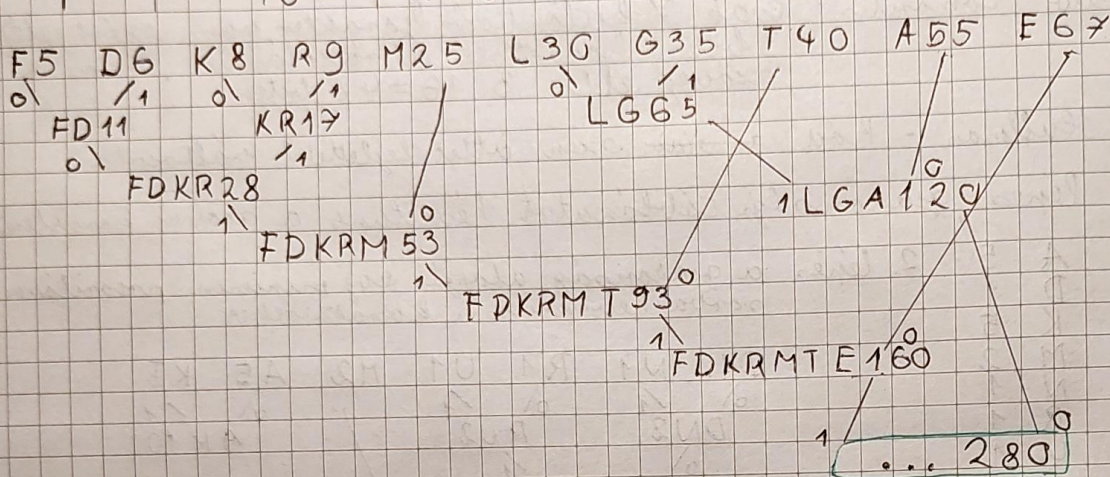 F5 D6 K8 R9 M25 L30 G35 T40 A55 E67
0 1 0 1 0 1
FD11 KR17 LG65
0 1
FDKR28 0
1 0 1LGA120
FDKRM53
1 0
FDKRMT93
1 0
FDKRMTE160
1 0
... 280